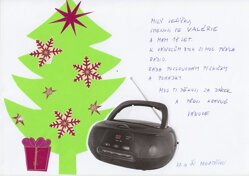 MILÝ JEŽÍŠKU,
JMENUJI SE VALÉRIE
A MÁM 18 LET.
K VÁNOCŮM BYCH SI MOC PŘÁLA
RÁDIO.
RÁDA POSLOUCHÁM PÍSNIČKY
A POHÁDKY.
MOC TI DĚKUJI ZA DÁREK
A PŘEJI KRÁSNÉ
VÁNOCE